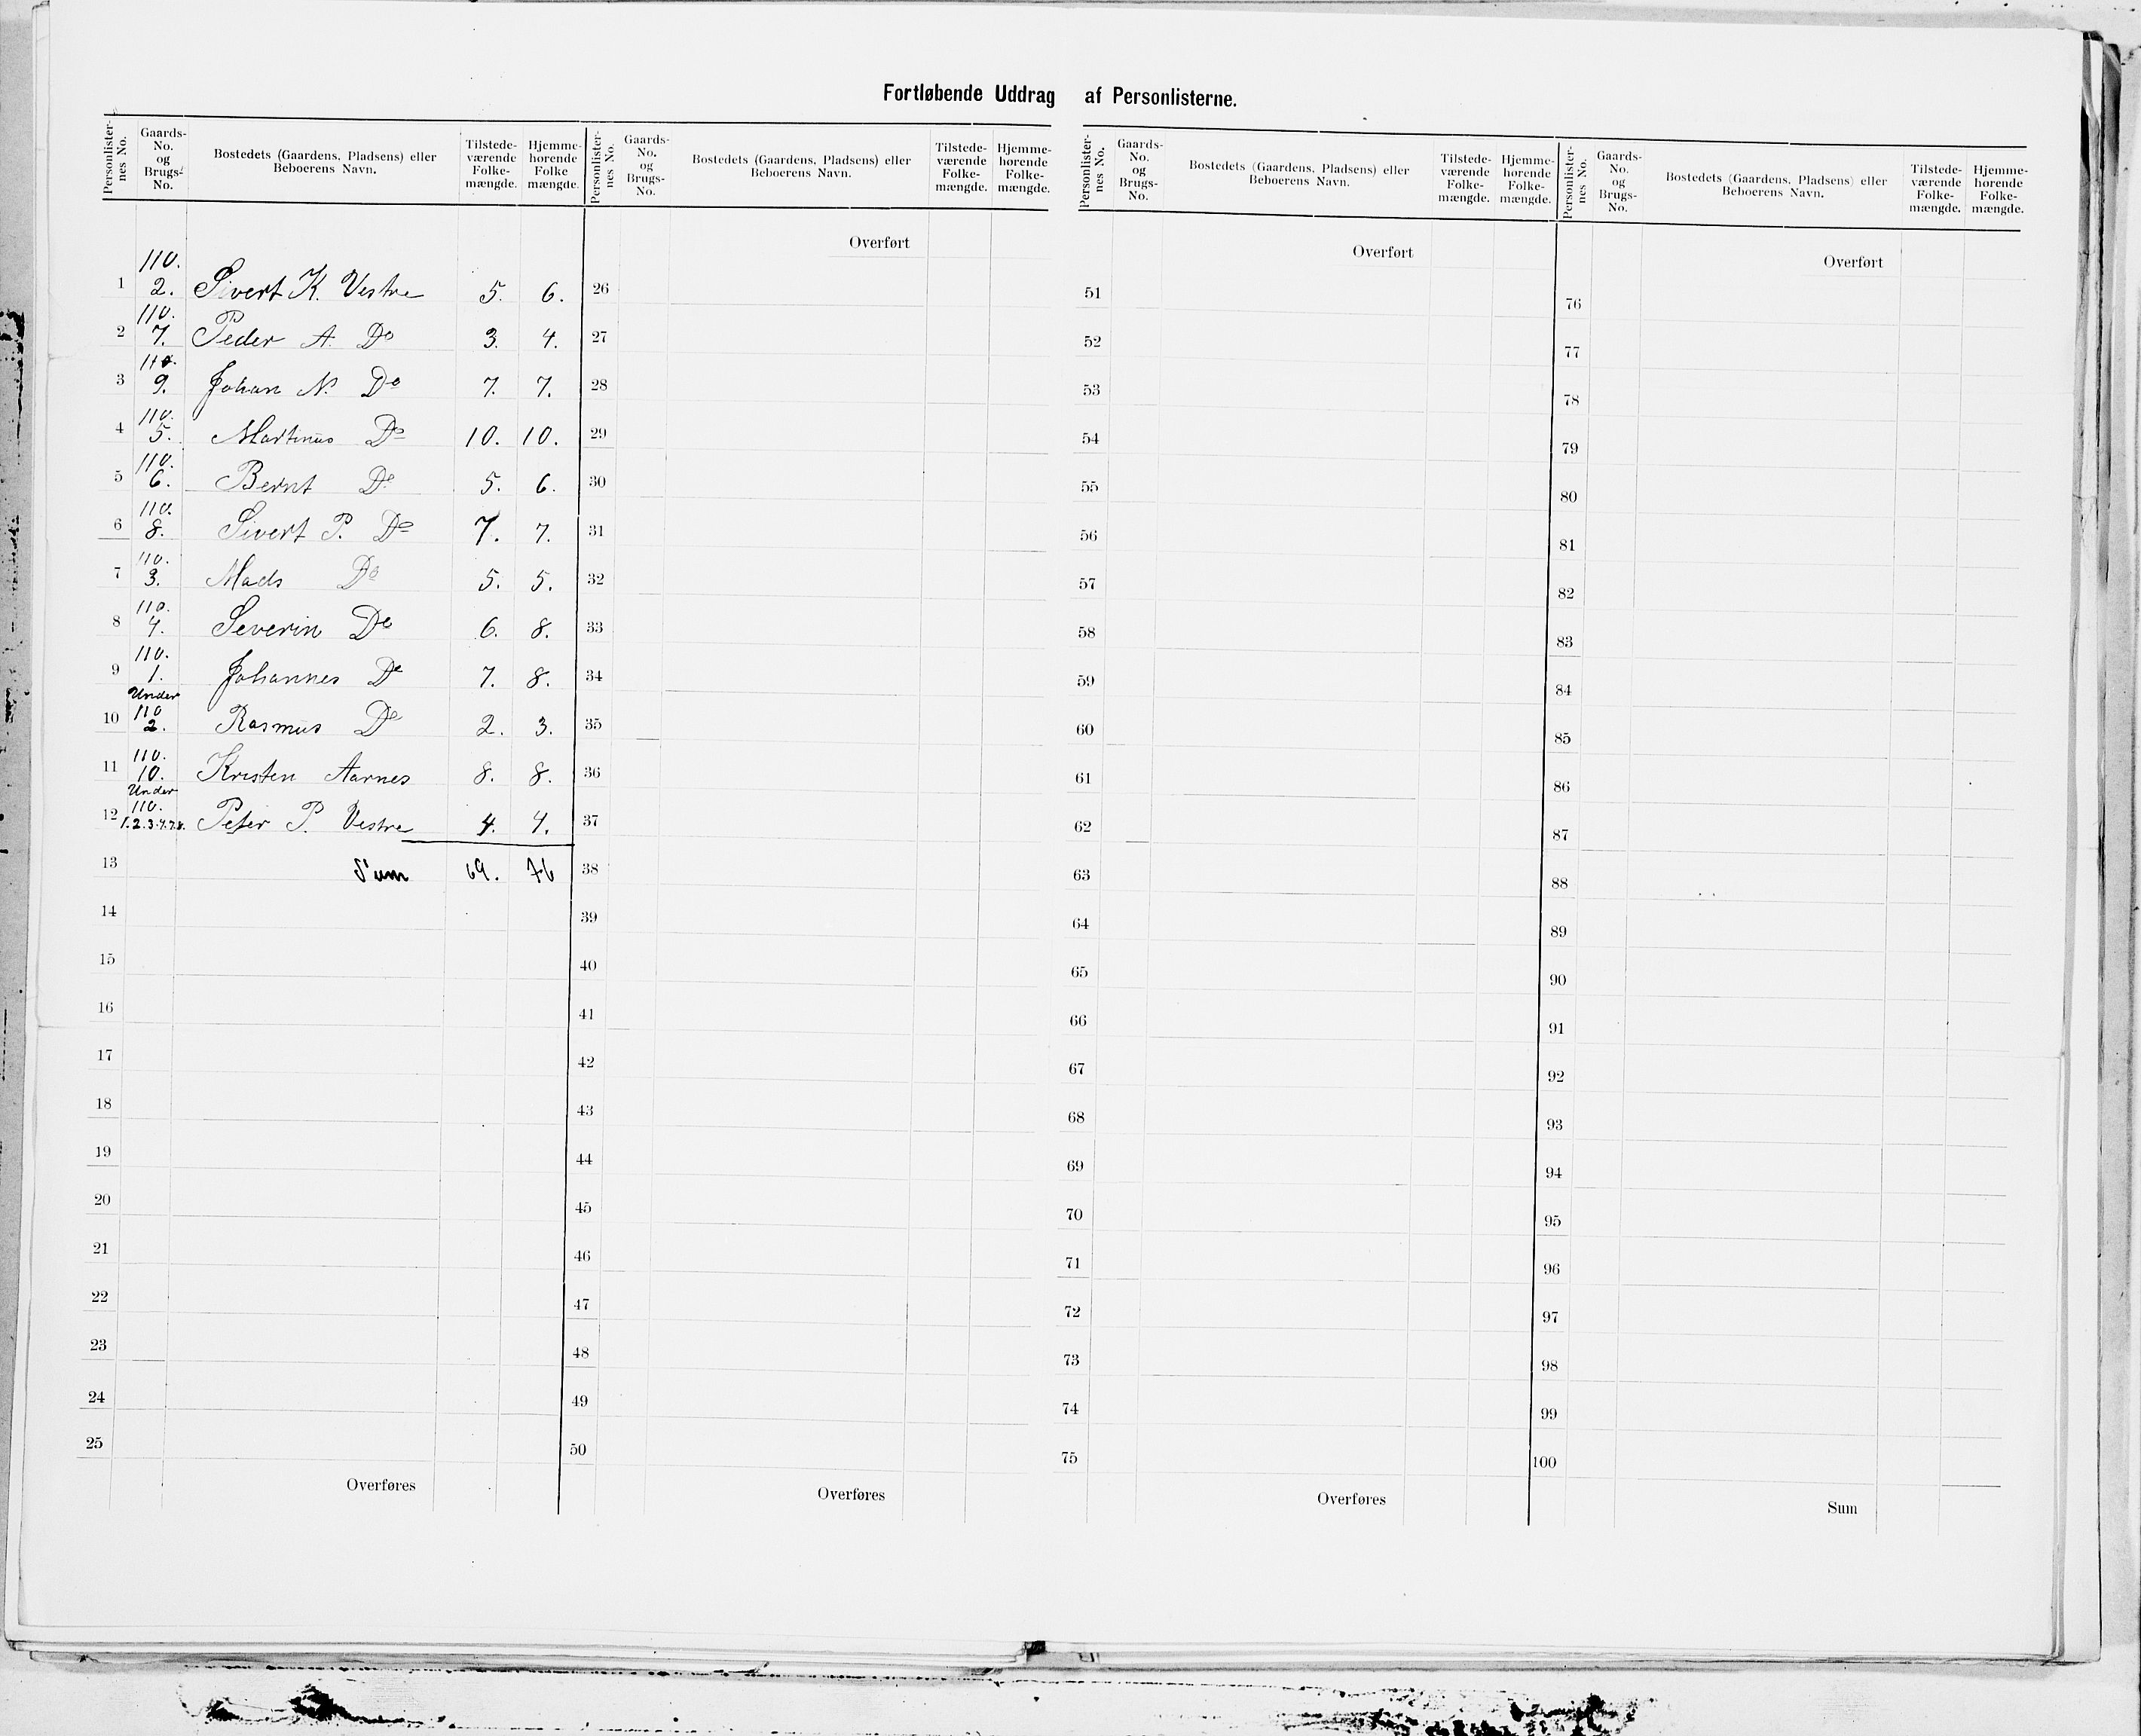 Fortløbende Uddrag af Personlisterne.
Personlister-
nes No.
Gaards-
No.
og
Brugs-
No.
Bostedets (Gaardens, Pladsens) eller
Beboerens Navn.
Tilstede-
værende
Folke-
mængde.
Hjemme-
hørende
Folke
mængde.
110.
1 2. Sivert K. Vestre 5. 6.
110.
2 7. Peder A. Do 3. 4.
110.
3 9. Johan N. Do 7. 7.
110.
4 5. Martinus Do 10. 10.
110.
5 6. Bernt Do 5. 6.
110.
6 8. Sivert P. Do 7. 7.
110.
7 3. Mads Do 5. 5.
110.
8 4. Severin Do 6. 8.
110.
9 1. Johannes Do 7. 8.
Under
110
10 2. Rasmus Do 2. 3.
110.
11 10. Kristen Aarnes 8. 8.
Under
110.
12 1.2.3.4.7.8. Peter P. Vestre 4. 4.
13 Sum 69. 76
14
15
16
17
18
19
20
21
22
23
24
25
Overføres
Personlister-
nes No.
Gaards-
No.
og
Brugs-
No.
Bostedets (Gaardens, Pladsens) eller
Beboerens Navn.
Tilstede-
værende
Folke-
mængde.
Hjemme-
hørende
Folke-
mængde.
Overført
26
27
28
29
30
31
32
33
34
35
36
37
38
39
40
41
42
43
44
45
46
47
48
49
50
Overføres
Personlister-
nes No.
Gaards-
No.
og
Brugs-
No.
Bostedets (Gaardens, Pladsens) eller
Beboerens Navn.
Tilstede-
værende
Folke-
mængde.
Hjemme-
hørende
Folke-
mængde.
Overført
51
52
53
54
55
56
57
58
59
60
61
62
63
64
65
66
67
68
69
70
71
72
73
74
75
Overføres
Personlister-
nes No.
Gaards-
No.
og
Brugs-
No.
Bostedets (Gaardens, Pladsens) eller
Beboerens Navn.
Tilstede-
værende
Folke-
mængde.
Hjemme-
hørende
Folke-
mængde.
Overført
76
77
78
79
80
81
82
83
84
85
86
87
88
89
90
91
92
93
94
95
96
97
98
99
100
Sum